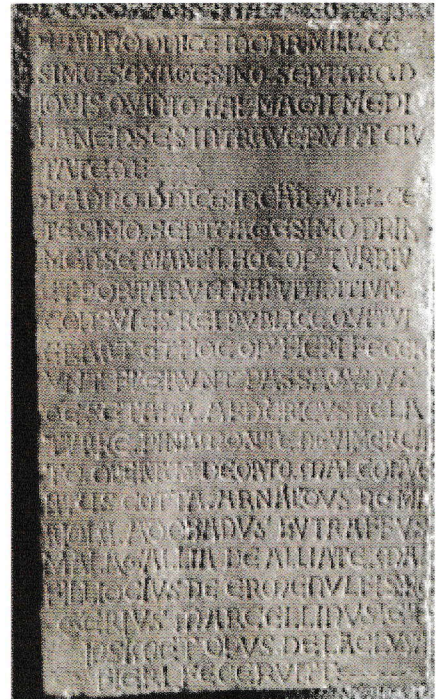 + ANNO DNICE INCAR MILL. CE
SIMO. SEXAGESIMO. SEPTIMO. D
IOVIS QVINTO KAL. MAGII MEDI
LANENSES INTRAVERVNT CIV
TATEM
+ ANNO DNICE INCAR. MILL. CE
TESIMO. SEPTVAGESIMO PRIM
MENSE MARCII HOC OP' TVRRIV
ET PORTARVM HABVIT INITIVM.
CONSVLES REI PVBLICE QVI TV
ERANT ET HOC OP' FIERI FECER
VNT FVERVNT PASSAGVADVS
DE SETARA. ARDERICVS DE LA
TVRRE. PINAMONTE DE VIMERCA
TO. OBERTVS DE ORTO. MALCONVE
TVS COTTA. ARNALDVS DE MA
ADOBADVS BVTRAFFVS
MALAGALLIA DE ALLIATE. MAL
FILLIOCIVS DE ERMENVLFIS. RO
GERIVS MARCELLINVS
DE LA CLVSA
FIERI FECERVNT